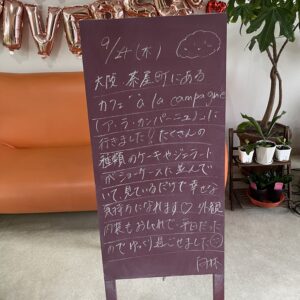 9/24(木)
大阪・茶屋町にある
カフェ"à la campagne
(ア・ラ・カンパーニュ)"に
行きました!たくさんの
種類のケーキやジェラート
がショーケースに並んで
いて、見ているだけで幸せな
気持ちになれます♡ 外観
内装もおしゃれで、平日だった
のでゆっくり過ごせました